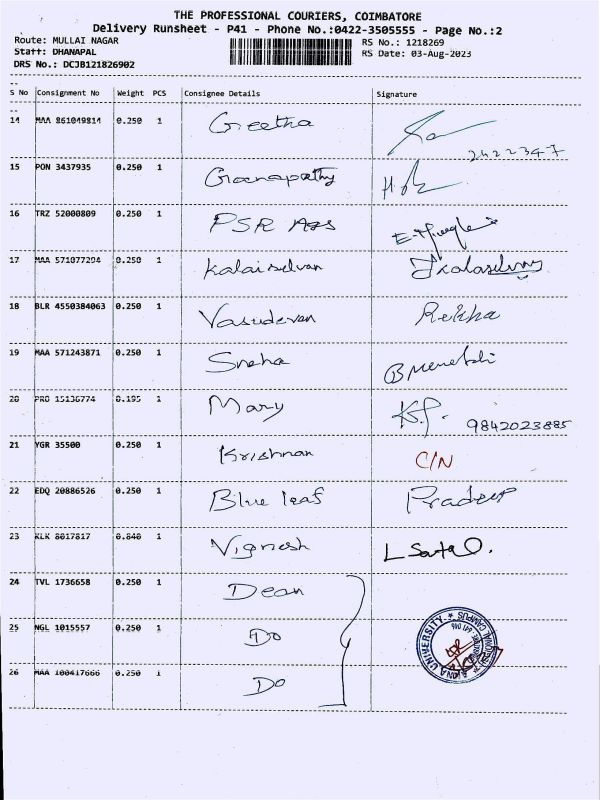 THE PROFESSIONAL COURIERS, COIMBATORE
Delivery Runsheet - P41 - Phone No.:0422-3505555 - Page No.:2
Route: MULLAI NAGAR
Staff: DHANAPAL
DRS No.: DCJB121826902
RS No.: 1218269
RS Date: 03-Aug-2023
S No Consignment No Weight PCS Consignee Details Signature
14 MAA 861049814 0.250 1 Greetha
2422347
15 PON 3437935 0.250 1 Ganapathy
16 TRZ 52000809 0.250 1 PSR
17 MAA 571077294 0.250 1 Kalaiselvan
18 BLR 4550384063 0.250 1 Vasudevan Rekha
19 MAA 571243871 0.250 1 Sneha
20 PRO 15136774 0.195 1 Mary 9842023885
21 YGR 35500 0.250 1 Krishnan C/N
22 EDQ 20886526 0.250 1 Blue leaf Pradeep
23 KLK 8017817 0.840 1 Vignesh
24 TVL 1736658 0.250 1 Dean
25 NGL 1015557 0.250 1 Do
26 MAA 100417666 0.250 1 Do